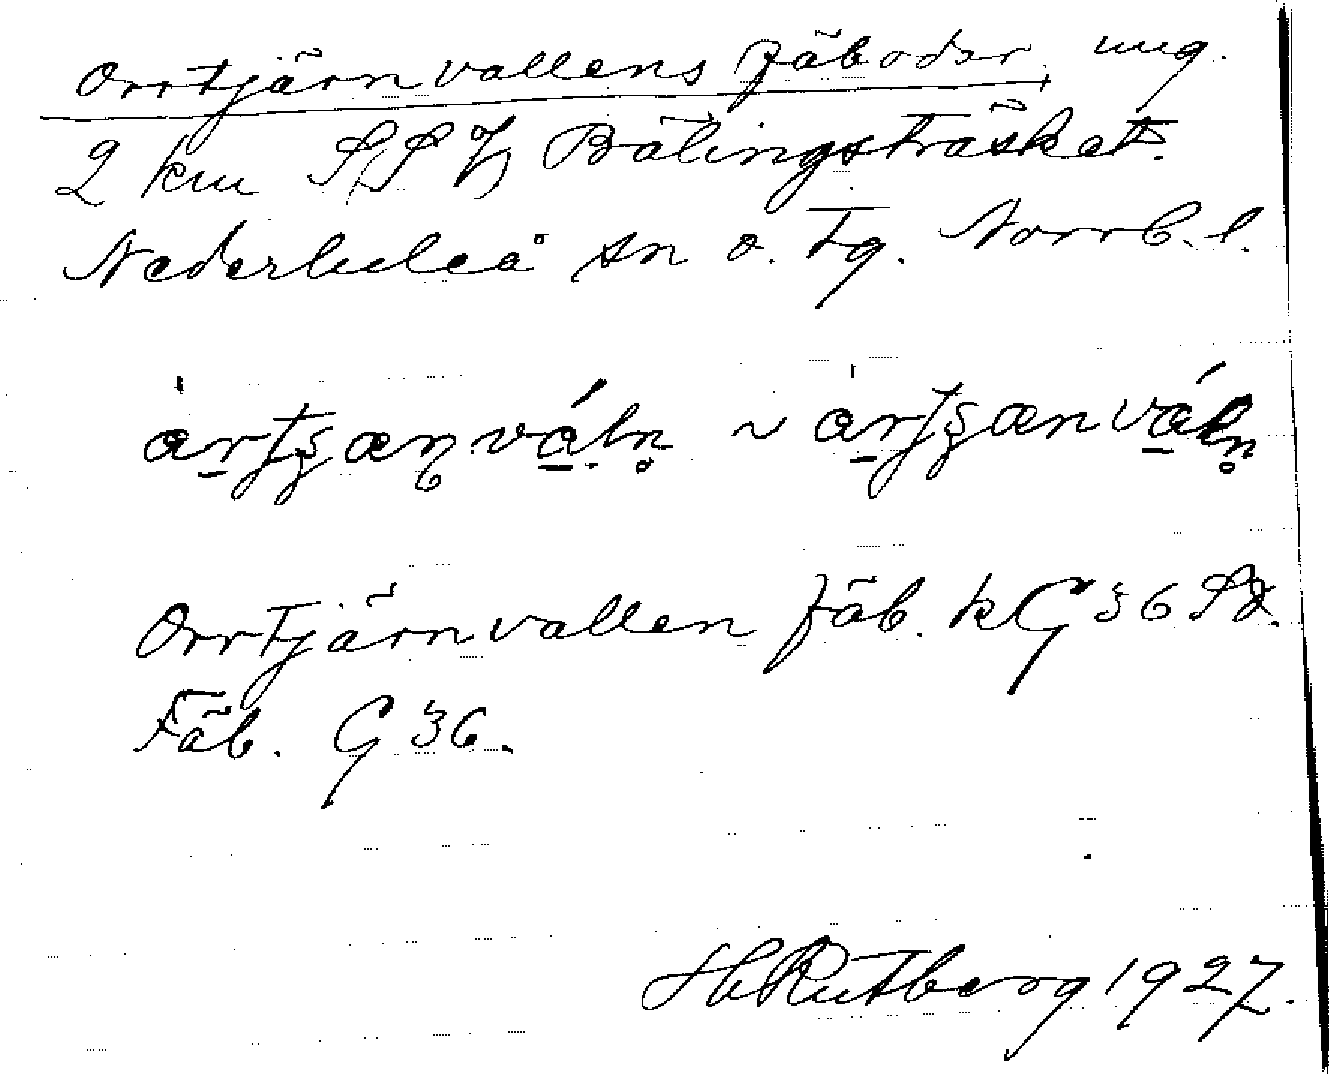 Orrtjärnvallens fäbodar, ung.
2 km SSV Bälingsträsket.
Nederluleå sn o. tg. Norrb. l.
Orrtjärnvallen fäb. kG 36 Sd.
Fäb. G 36.
Hb Rutberg 1927.